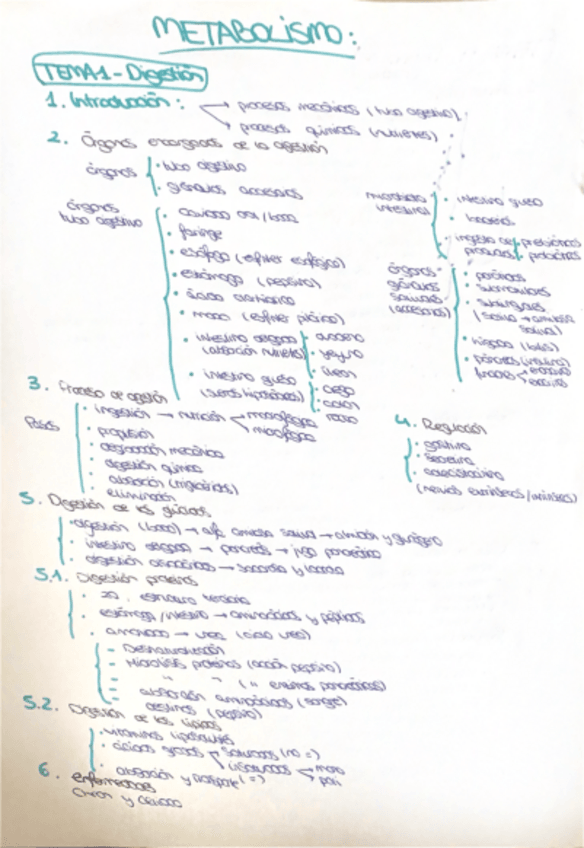 METABOLISMO:
TEMA 1 - Digestión
1. Introducción:
procesos mecánicos (tubo digestivo)
procesos químicos (nutrientes)
2. Órganos encargados de la digestión
órganos
tubo digestivo
glándulas accesorias
órganos tubo digestivo
cavidad oral/boca
faringe
esófago (esfínter esofágico)
estómago (pepsina)
ácido
mano (esfínter pilórico)
intestino delgado (absorción nutrientes)
duodeno
yeyuno
íleon
intestino grueso
ciego
colon
recto
microbiota intestinal
intestino grueso
bacterias
ingesta de productos
prebióticos
probióticos
órganos glándulas salivares (accesorias)
parótidas
submaxilares
sublinguales
(saliva → amilasa salival)
hígado (bilis)
páncreas (insulina)
3. Proceso de digestión
Pasos
ingestión → nutrición
macrófagos
micrófagos
propulsión
degradación mecánica
digestión química
absorción
eliminación
4. Regulación
gastrina
secretina
colecistoquinina
(nervios extrínsecos/intrínsecos)
5. Digestión de los glúcidos
digestión (boca) → alfa amilasa salival → almidón y glucógeno
intestino delgado → páncreas → jugo pancreático
digestión → sacarosa y lactosa
5.1. Digestión proteínas
20. estructura terciaria
estómago/intestino → aminoácidos y péptidos
amoniaco → urea (ciclo urea)
- Desnaturalización
- Hidrólisis proteínas (acción pepsina)
- " " (" enzimas pancreáticas)
- absorción aminoácidos (sangre)
5.2. Digestión de los lípidos
vitaminas liposolubles
ácidos grasos
saturados (no =)
insaturados
mono
poli
absorción y transporte (=)
6. enfermedades
Chron y celiaca